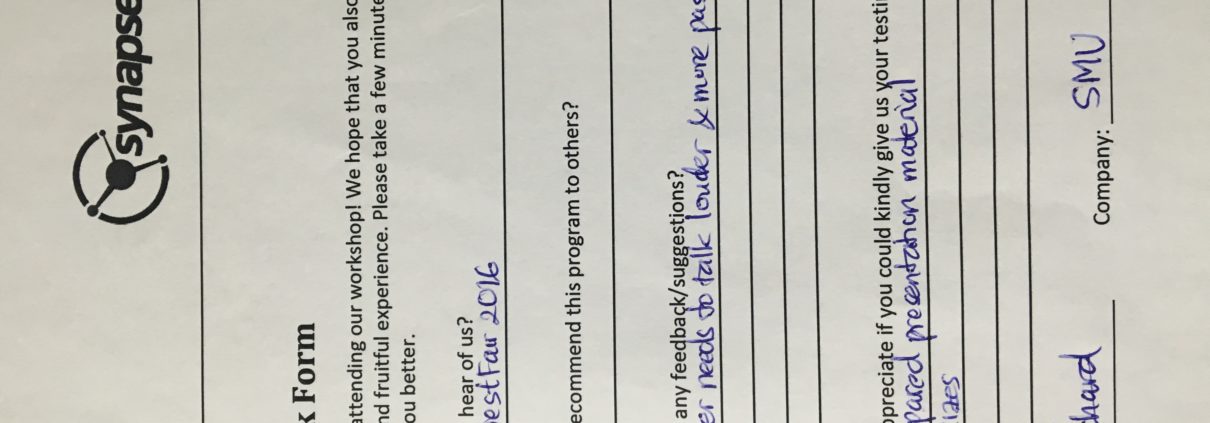 synapse
k Form
attending our workshop! We hope that you also
nd fruitful experience. Please take a few minute
ou better.
hear of us?
estFair 2016
ecommend this program to others?
any feedback/suggestions?
er needs to talk louder & more pas
preciate if you could kindly give us your testi
pared presentation material
izes
hard Company: SMU